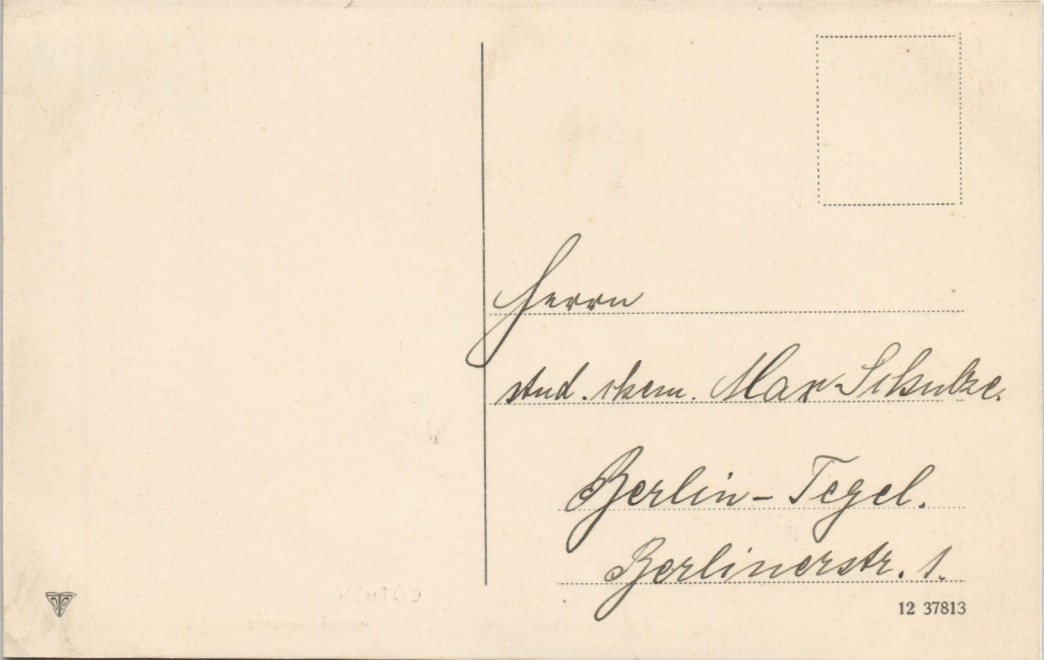 Herrn
stud. chem. Max Schulze.
Berlin-Tegel.
Berlinerstr. 1.
12 37813